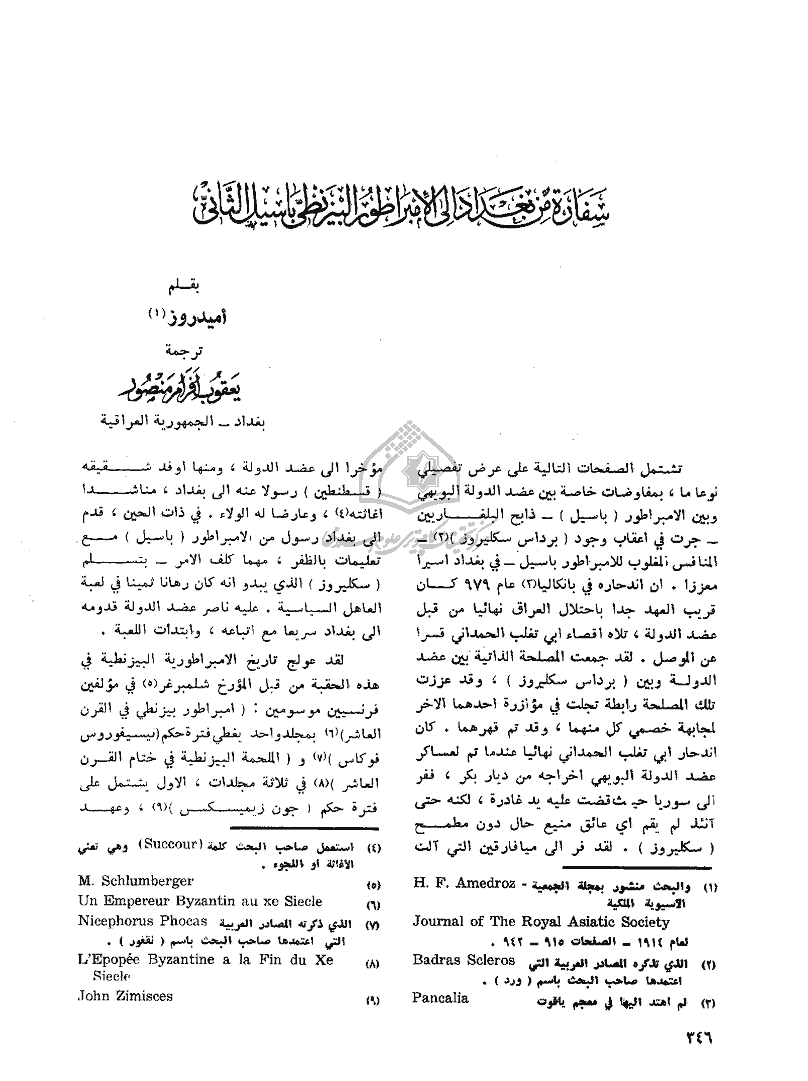 سفارة من بغداد الى الامبراطور البيزنطي باسيل الثاني
بقلم
أميدروز (١)
ترجمة
يعقوب افرام منصور
بغداد ــ الجمهورية العراقية
تشتمل الصفحات التالية على عرض تفصيلي
نوعا ما ، بمفاوضات خاصة بين عضد الدولة البويهي
وبين الامبراطور ( باسيل ) ــ ذابح البلغاريين
ــ جرت في اعقاب وجود ( برداس سكليروز )(٢) ــ
المنافس المغلوب للامبراطور باسيل ــ في بغداد اسيرا
معززا . ان اندحاره في بانكاليا(٣) عام ٩٧٩ كان
قريب العهد جدا باحتلال العراق نهائيا من قبل
عضد الدولة ، تلاه اقصاء ابي تغلب الحمداني قسرا
عن الموصل . لقد جمعت المصلحة الذاتية بين عضد
الدولة وبين ( برداس سكليروز ) ، وقد عززت
تلك المصلحة رابطة تجلت في مؤازرة احدهما الاخر
لمجابهة خصمي كل منهما ، وقد تم قهرهما . كان
اندحار ابي تغلب الحمداني نهائيا عندما تم لعساكر
عضد الدولة البويهي اخراجه من ديار بكر ، ففر
الى سوريا حيث قضت عليه يد غادرة ، لكنه حتى
آنئذ لم يقم اي عائق منيع حال دون مطمح
( سكليروز ) . لقد فر الى ميافارقين التي آلت
(١) والبحث منشور بمجلة الجمعية - H. F. Amedroz
الآسيوية الملكية
Journal of The Royal Asiatic Society
لعام ١٩١٤ ــ الصفحات ٩١٥ ــ ٩٤٢ .
(٢) الذي تذكره المصادر العربية التي Badras Scleros
اعتمدها صاحب البحث باسم ( ورد ) .
(٣) لم اهتد اليها في معجم ياقوت Pancalia
مؤخرا الى عضد الدولة ، ومنها اوفد شقيقه
( قسطنطين ) رسولا عنه الى بغداد ، مناشدا
اغاثته(٤) ، وعارضا له الولاء . في ذات الحين ، قدم
الى بغداد رسول من الامبراطور ( باسيل ) مع
تعليمات بالظفر ، مهما كلف الامر ــ بتسلم
( سكليروز ) الذي يبدو انه كان رهانا ثمينا في لعبة
العاهل السياسية . عليه ناصر عضد الدولة قدومه
الى بغداد سريعا مع اتباعه ، وابتدات اللعبة .
لقد عولج تاريخ الامبراطورية البيزنطية في
هذه الحقبة من قبل المؤرخ شلمبرغر(٥) في مؤلفين
فرنسيين موسومين : ( امبراطور بيزنطي في القرن
العاشر)(٦) بمجلد واحد يغطي فترة حكم (نيسيفوروس
فوكاس )(٧) و ( الملحمة البيزنطية في ختام القرن
العاشر )(٨) في ثلاثة مجلدات ، الاول يشتمل على
فترة حكم ( جون زيميسكس )(٩) ، وعهد
(٤) استعمل صاحب البحث كلمة (Succour) وهي تعني
الاغاثة او اللجوء .
(٥) M. Schlumberger
(٦) Un Empereur Byzantin au xe Siecle
(٧) الذي ذكرته المصادر العربية Nicephorus Phocas
التي اعتمدها صاحب البحث باسم ( نقفور ) .
(٨) L'Epopée Byzantine a la Fin du Xe
Siecle
(٩) John Zimisces
٣٤٦